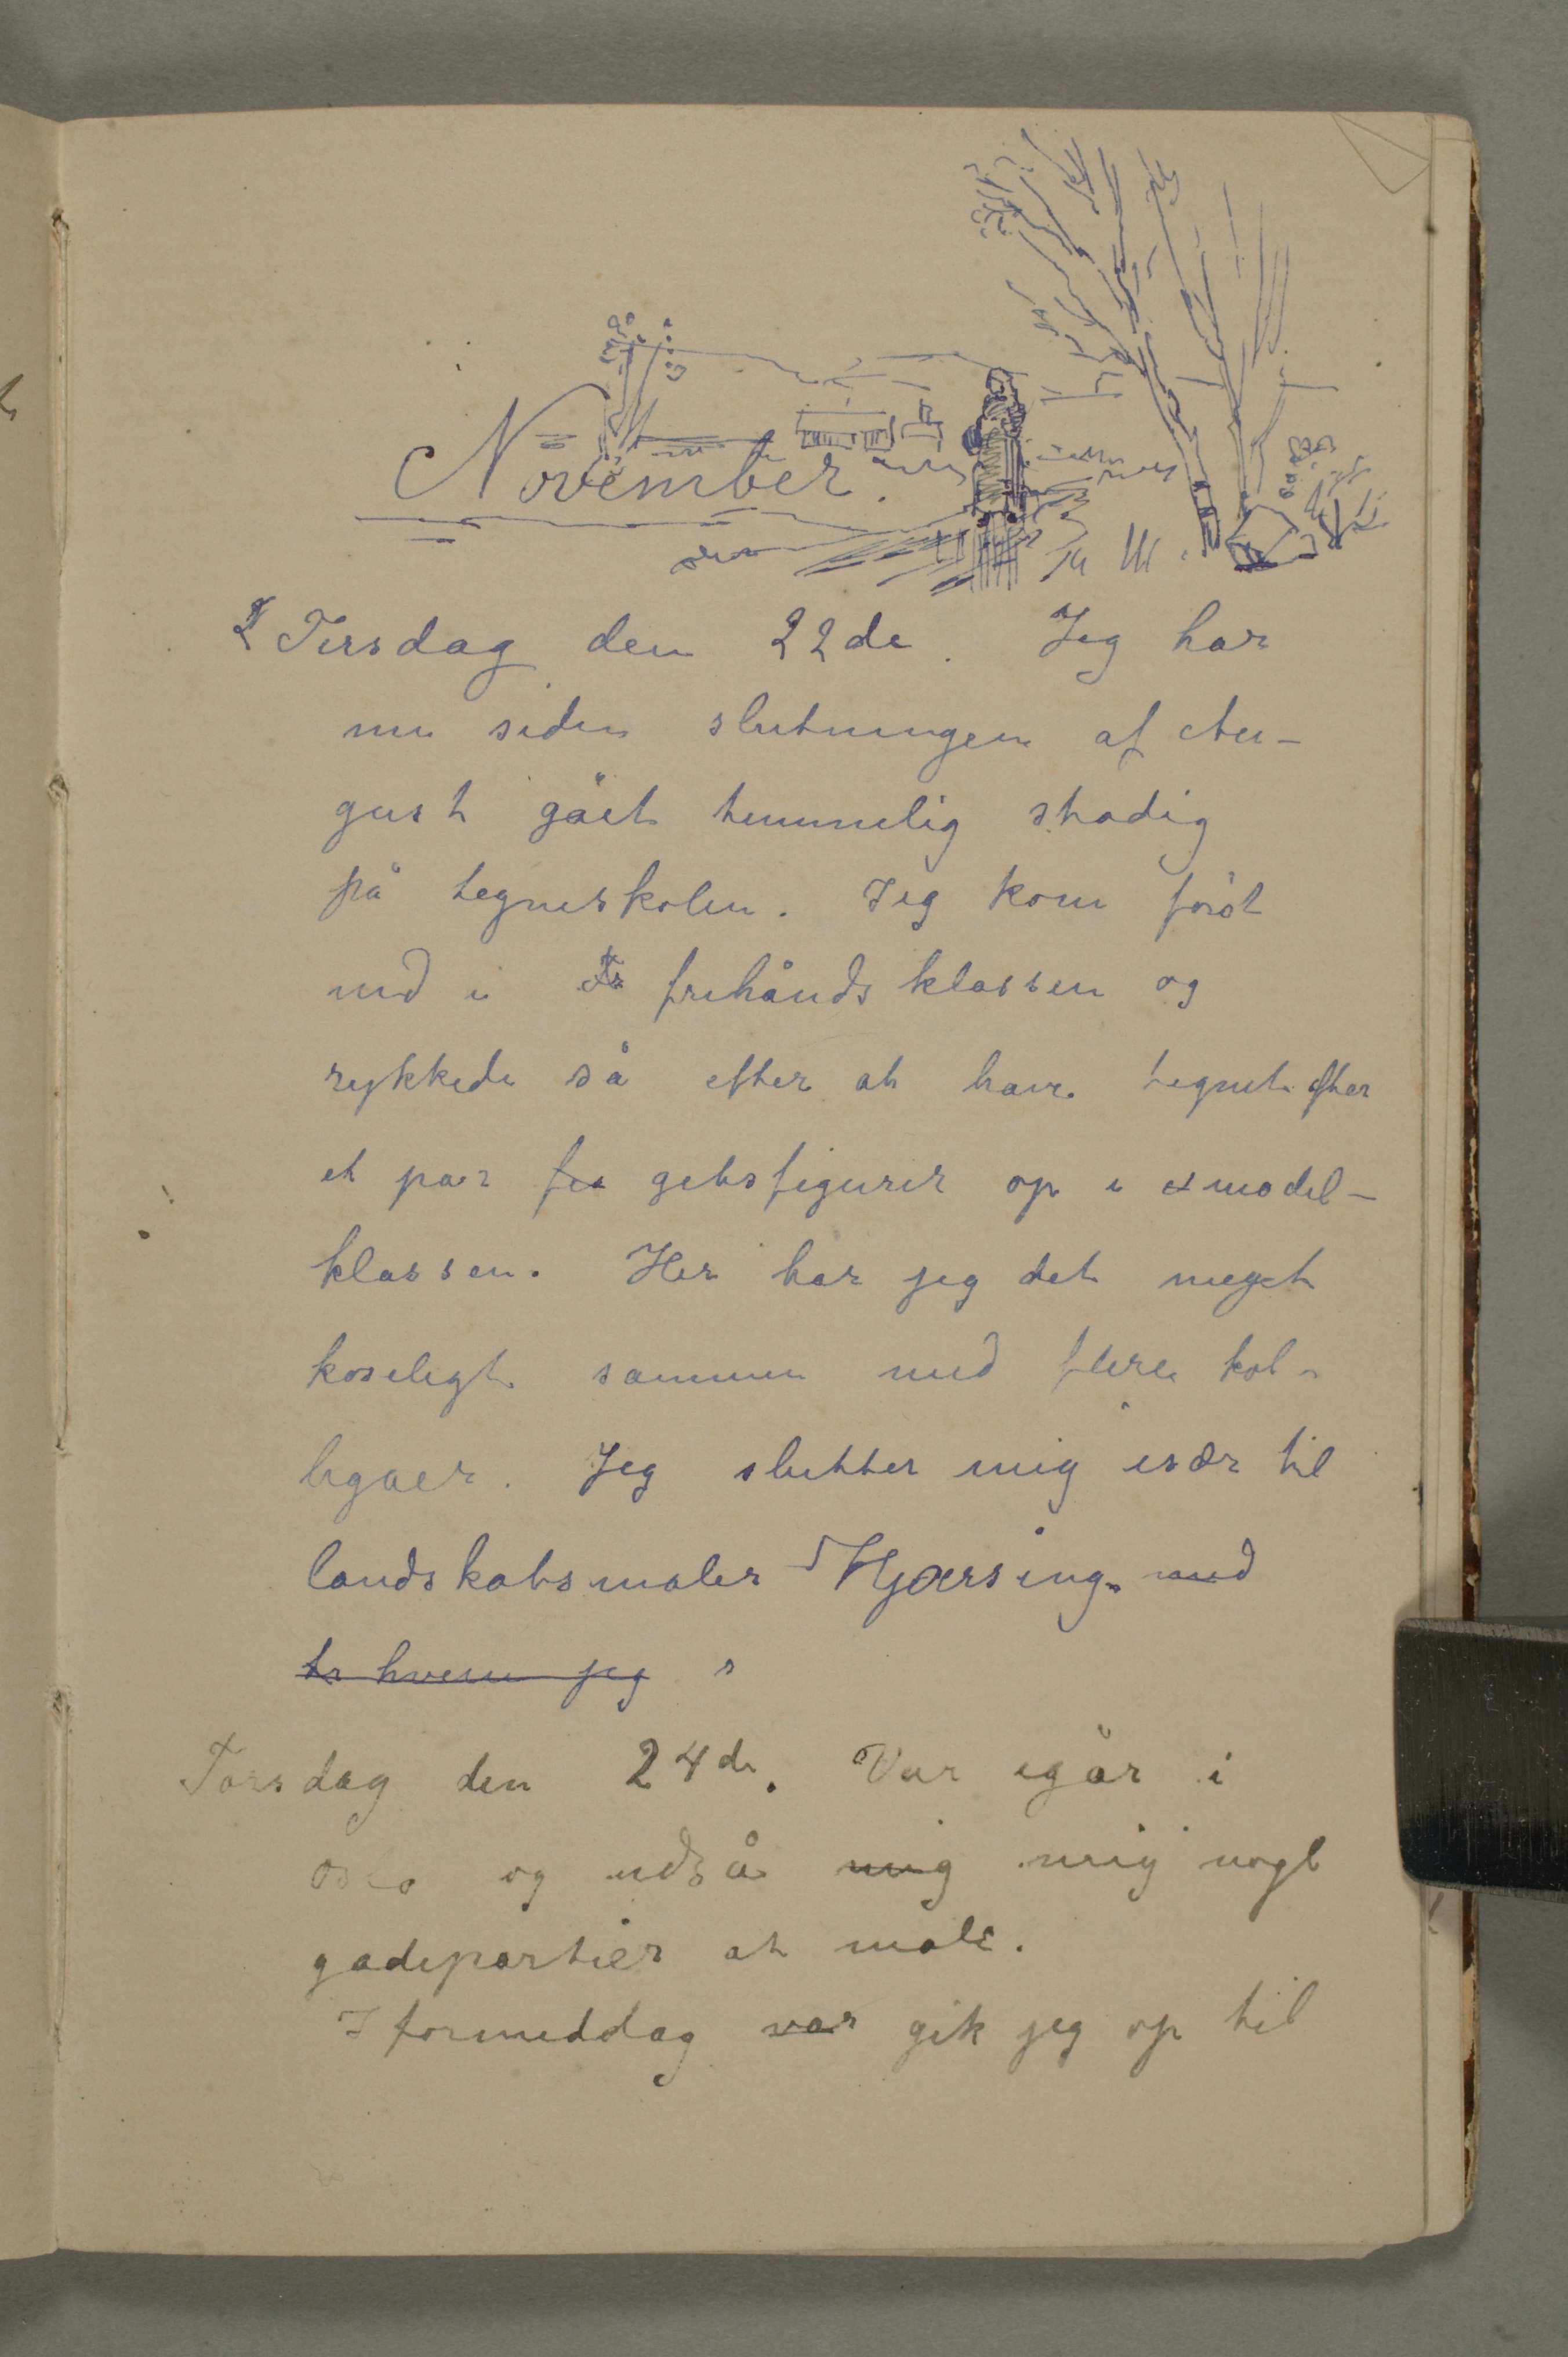 November.
Tirsdag den 22de. Jeg har
nu siden slutningen af Au-
gust gået temmelig stadig
på tegneskolen. Jeg kom først
ned i Fr frihånds klassen og
rykkede så efter at have tegnet efter
et par fra gibsfigurer op i model-
klassen. Her har jeg det meget
koseligt sammen med flere kol-
legaer. Jeg slutter mig især til
landskabsmaler Hjærsing. med
hvem jeg
Torsdag den 24de. Var igår i
Oslo og udså mig mig nogle
gadepartier at male.
I formiddag var gik jeg op til